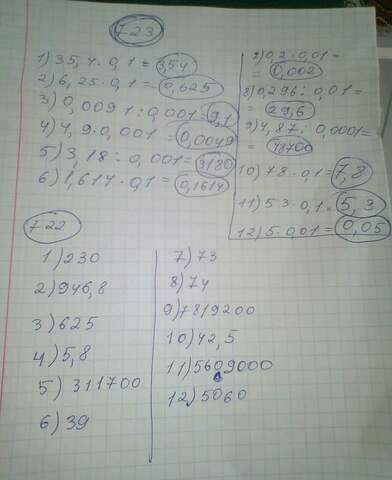 723
1) 35,4·0,1=3,54
2) 6,25·0,1=0,625
3) 0,0091:0,001=9,1
4) 4,9·0,001=0,0049
5) 3,18:0,001=3180
6) 1,614·0,1=0,1614
7) 0,2·0,01=
=0,002
8) 0,296:0,01=
=29,6
9) 4,87:0,0001=
48700
10) 78·0,1=7,8
11) 53·0,1=5,3
12) 5·0,01=0,05
722
1) 230
2) 946,8
3) 625
4) 5,8
5) 311700
6) 39
7) 73
8) 74
9) 7819200
10) 42,5
11) 5609000
12) 5060